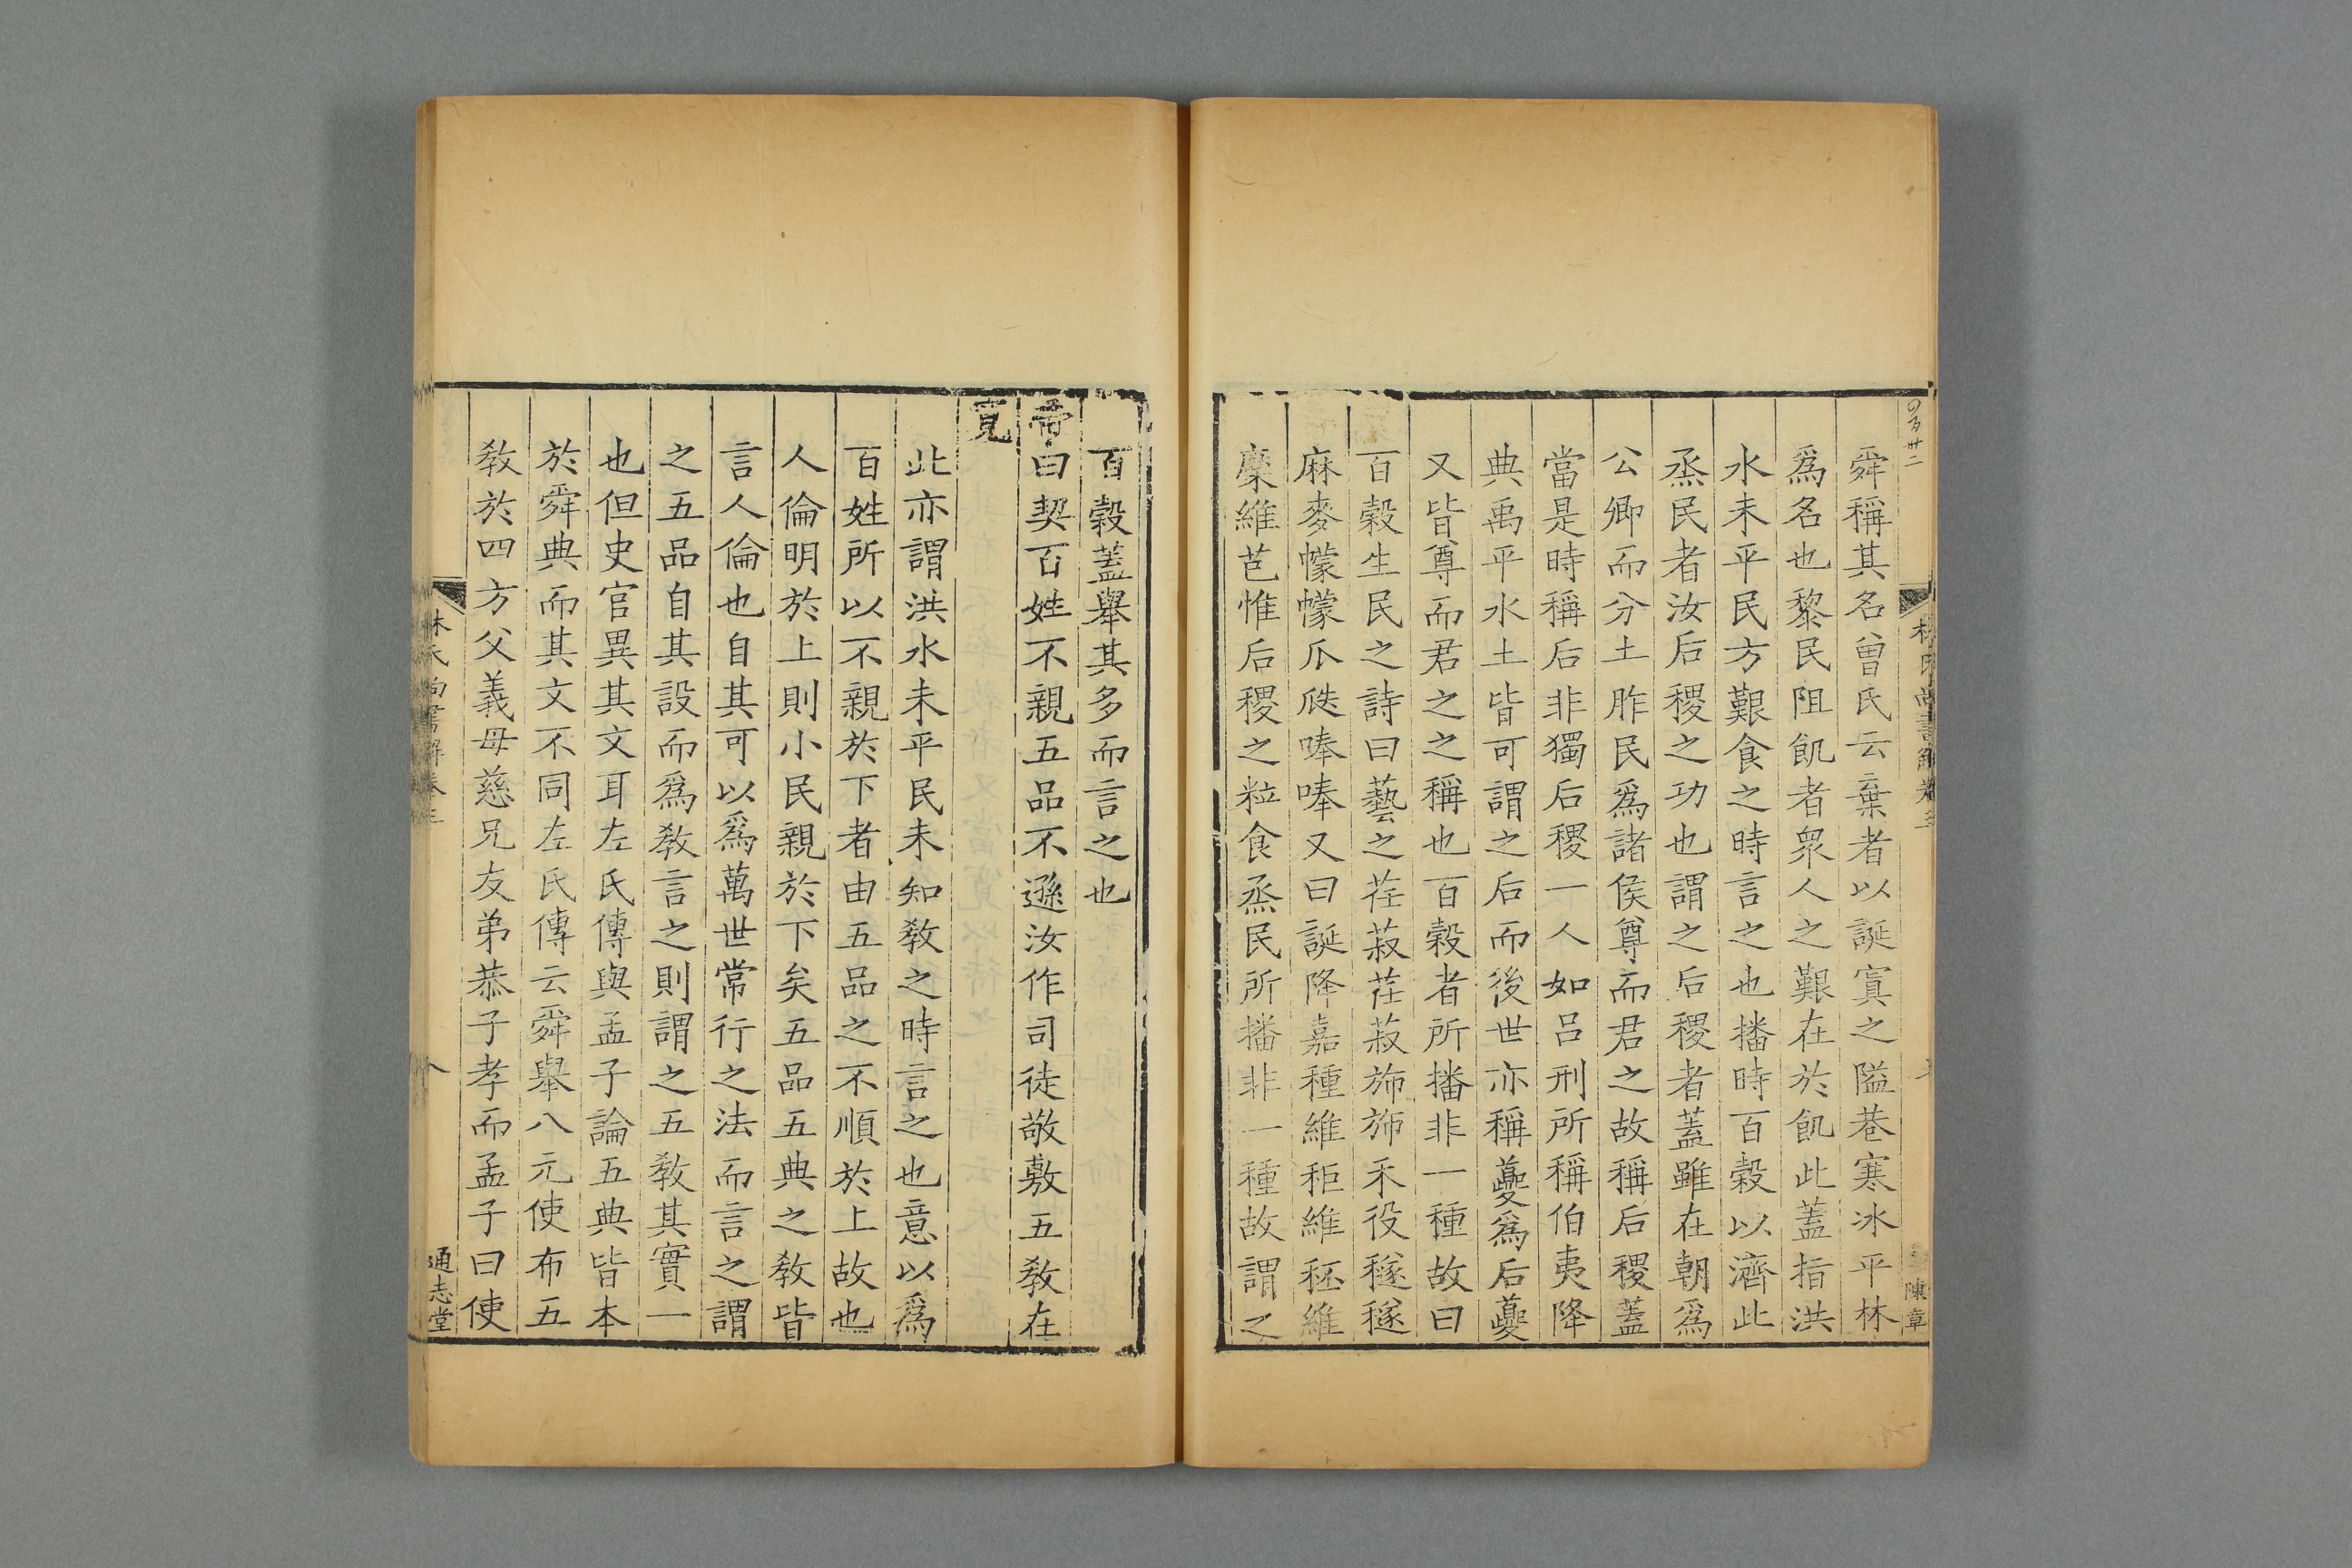 舜稱其名曾氏云棄者以誕寘之隘巷寒冰平林
爲名也黎民阻飢者衆人之艱在於飢此蓋指洪
水未平民方艱食之時言之也播時百穀以濟此
烝民者汝后稷之功也謂之后稷者蓋雖在朝爲
公卿而分土胙民爲諸侯尊而君之故稱后稷蓋
當是時稱后非獨后稷一人如呂刑所稱伯夷降
典禹平水土皆可謂之后而後世亦稱夔爲后夔
又皆尊而君之之稱也百穀者所播非一種故曰
百穀生民之詩曰藝之荏菽荏菽斾斾禾役穟穟
麻麥幪幪瓜瓞唪唪又曰誕降嘉種維秬維秠維
穈維芑惟后稷之粒食烝民所播非一種故謂之
陳章
百穀蓋舉其多而言之也
帝曰契百姓不親五品不遜汝作司徒敬敷五敎在
寬
此亦謂洪水未平民未知敎之時言之也意以爲
百姓所以不親於下者由五品之不順於上故也
人倫明於上則小民親於下矣五品五典之敎皆
言人倫也自其可以爲萬世常行之法而言之謂
之五品自其設而爲敎言之則謂之五敎其實一
也但史官異其文耳左氏傳與孟子論五典皆本
於舜典而其文不同左氏傳云舜舉八元使布五
敎於四方父義母慈兄友弟恭子孝而孟子曰使
林氏尚書解卷三
八
通志堂